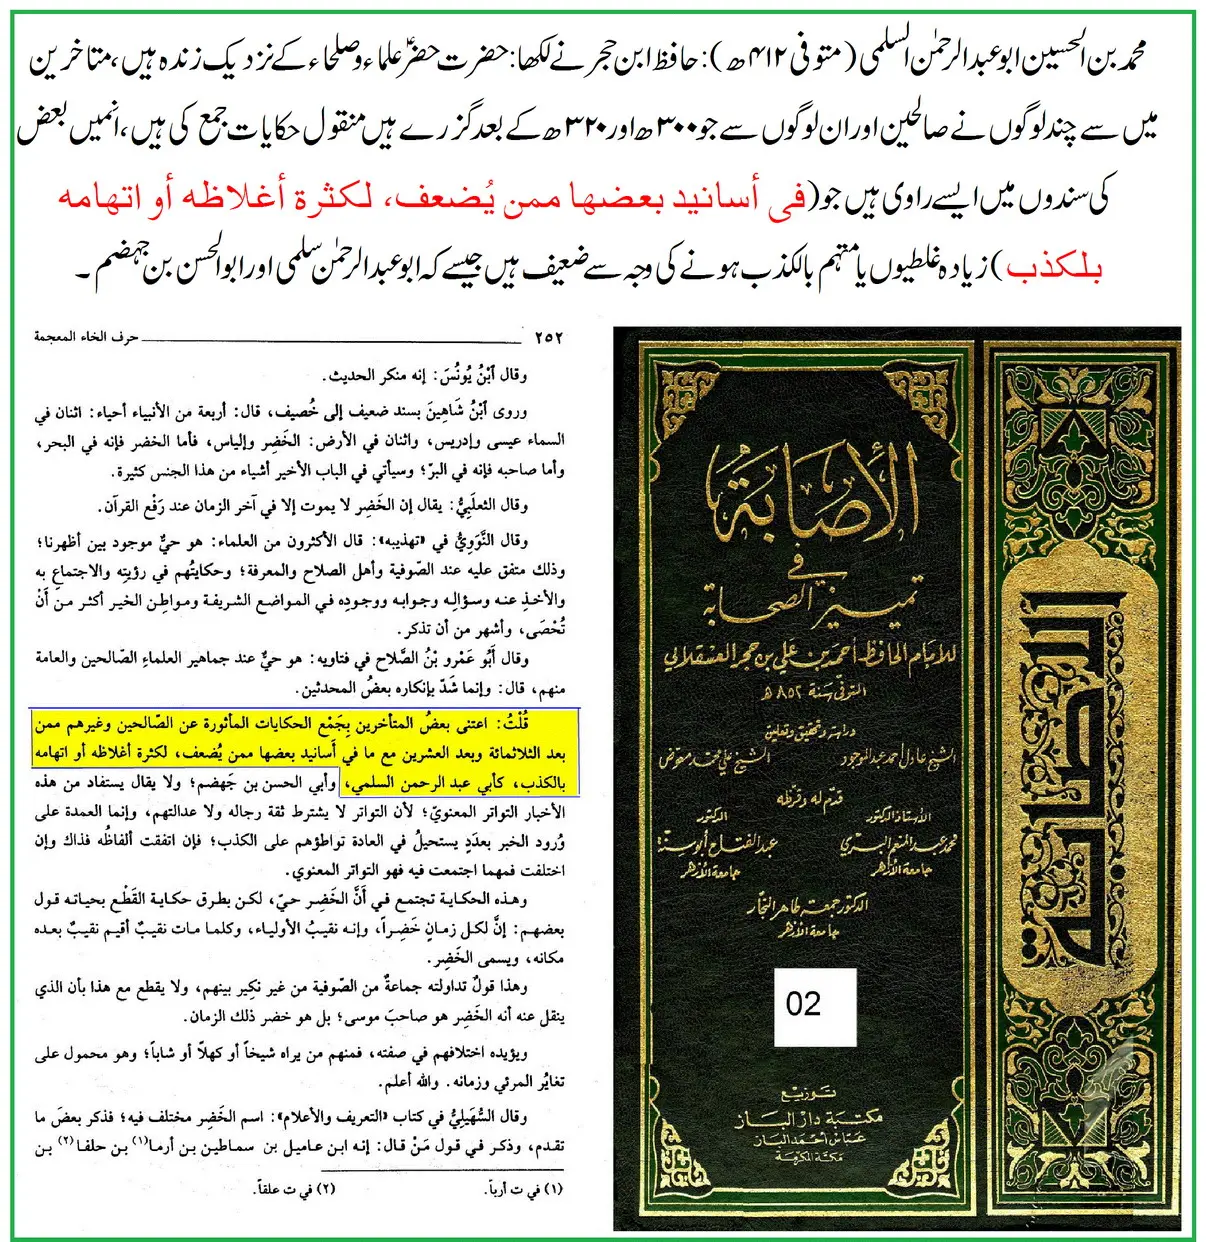 محمد بن الحسین ابو عبدالرحمٰن السلمی (متوفی ۴۱۲ھ): حافظ ابن حجر نے لکھا: حضرت خضرؑ علماء و صلحاء کے نزدیک زندہ ہیں، متاخرین
میں سے چند لوگوں نے صالحین اور ان لوگوں سے جو ۳۰۰ھ اور ۳۲۰ھ کے بعد گزرے ہیں منقول حکایات جمع کی ہیں، انمیں بعض
کی سندوں میں ایسے راوی ہیں جو (فی أسانید بعضها ممن يُضعف، لكثرة أغلاظه أو اتهامه
بلكذب) زیادہ غلطیوں یا متہم بالکذب ہونے کی وجہ سے ضعیف ہیں جیسے کہ ابو عبدالرحمٰن سلمی اور ابوالحسن بن جہضم۔
٢٥٢ حرف الخاء المعجمة
وقال ٱبْنُ يُونُسَ: إنه منكر الحديث.
وروى ٱبْنُ شَاهِينَ بسند ضعيف إلى خُصيف، قال: أربعة من الأنبياء أحياء: اثنان في
السماء عيسى وإدريس، واثنان في الأرض: الخَضِر وإلياس، فأما الخضر فإنه في البحر،
وأما صاحبه فإنه في البرّ؛ وسيأتي في الباب الأخير أشياء من هذا الجنس كثيرة.
وقال الثعلَبِيُّ: يقال إن الخَضِر لا يموت إلا في آخر الزمان عند رَفْع القرآن.
وقال النَّوَوِيُّ في «تهذيبه»: قال الأكثرون من العلماء: هو حيٌّ موجود بين أظهرنا؛
وذلك متفق عليه عند الصّوفية وأهل الصلاح والمعرفة؛ وحكايتُهم في رؤيتِه والاجتماعِ به
والأخذِ عنه وسؤالِه وجوابه ووجوده في المواضع الشريفة ومواطِن الخير أكثر من أَنْ
تُحْصَى، وأشهر من أن تذكر.
وقال أَبُو عَمْرو بْنُ الصَّلاح في فتاويه: هو حيٌّ عند جماهير العلماءِ الصّالحين والعامة
منهم، قال: وإنما شَذّ بإنكاره بعضُ المحدثين.
قُلْتُ: اعتنى بعضُ المتأخرين بِجَمْع الحكايات المأثورة عن الصّالحين وغيرهم ممن
بعد الثلاثمائة وبعد العشرين مع ما في أسانيد بعضها ممن يُضعف، لكثرة أغلاظه أو اتهامه
بالكذب، كأبي عبد الرحمن السلمي، وأبي الحسن بن جَهضم؛ ولا يقال يستفاد من هذه
الأخبار التواتر المعنويّ؛ لأن التواتر لا يشترط ثقة رجاله ولا عدالتهم، وإنما العمدة على
وُرود الخبر بعدَدٍ يستحيلُ في العادة تواطؤهم على الكذب؛ فإن اتفقت ألفاظُه فذاك وإن
اختلفت فمهما اجتمعت فيه فهو التواتر المعنوي.
وهذه الحكاية تجتمع في أَنَّ الخَضِر حيّ، لكن بطرق حكاية القَطْع بحياته قول
بعضهم: إنَّ لكل زمانٍ خَضِراً، وإنه نقيبُ الأولياء، وكلما مات نقيبٌ أقيم نقيبٌ بعده
مكانه، ويسمى الخَضِر.
وهذا قولٌ تداولته جماعةٌ من الصّوفية من غير نكِير بينهم، ولا يقطع مع هذا بأن الذي
ينقل عنه أنه الخَضِر هو صاحبَ موسى؛ بل هو خضر ذلك الزمان.
ويؤيده اختلافهم في صفته، فمنهم من يراه شيخاً أو كهلًا أو شاباً؛ وهو محمول على
تغايُر المرئي وزمانه. والله أعلم.
وقال السُّهَيليُّ في كتاب «التعريف والأعلام»: اسم الخَضِر مختلف فيه؛ فذكر بعضَ ما
تقدم، وذكر في قول مَنْ قال: إنه ابن عاميل بن سماطين بن أرما(١) بن حلفا(٢) بن
(١) في ت أرباً. (٢) في ت علفاً.
الإصابة
في
تمييز الصحابة
للإمام الحافظ أحمد بن علي بن حجر العسقلاني
المتوفى سنة ٨٥٢ هـ
دراسة وتحقيق وتعليق
الشيخ عادل أحمد عبد الموجود الشيخ علي محمد معوض
قدم له وقرظه
الأستاذ الدكتور الدكتور
محمد عبد المنعم البري عبد الفتاح أبو سنة
جامعة الأزهر جامعة الأزهر
الدكتور جمعة طاهر النجار
جامعة الأزهر
02
توزيع
مكتبة دار الباز
عباس أحمد الباز
مكة المكرمة
الإصابة